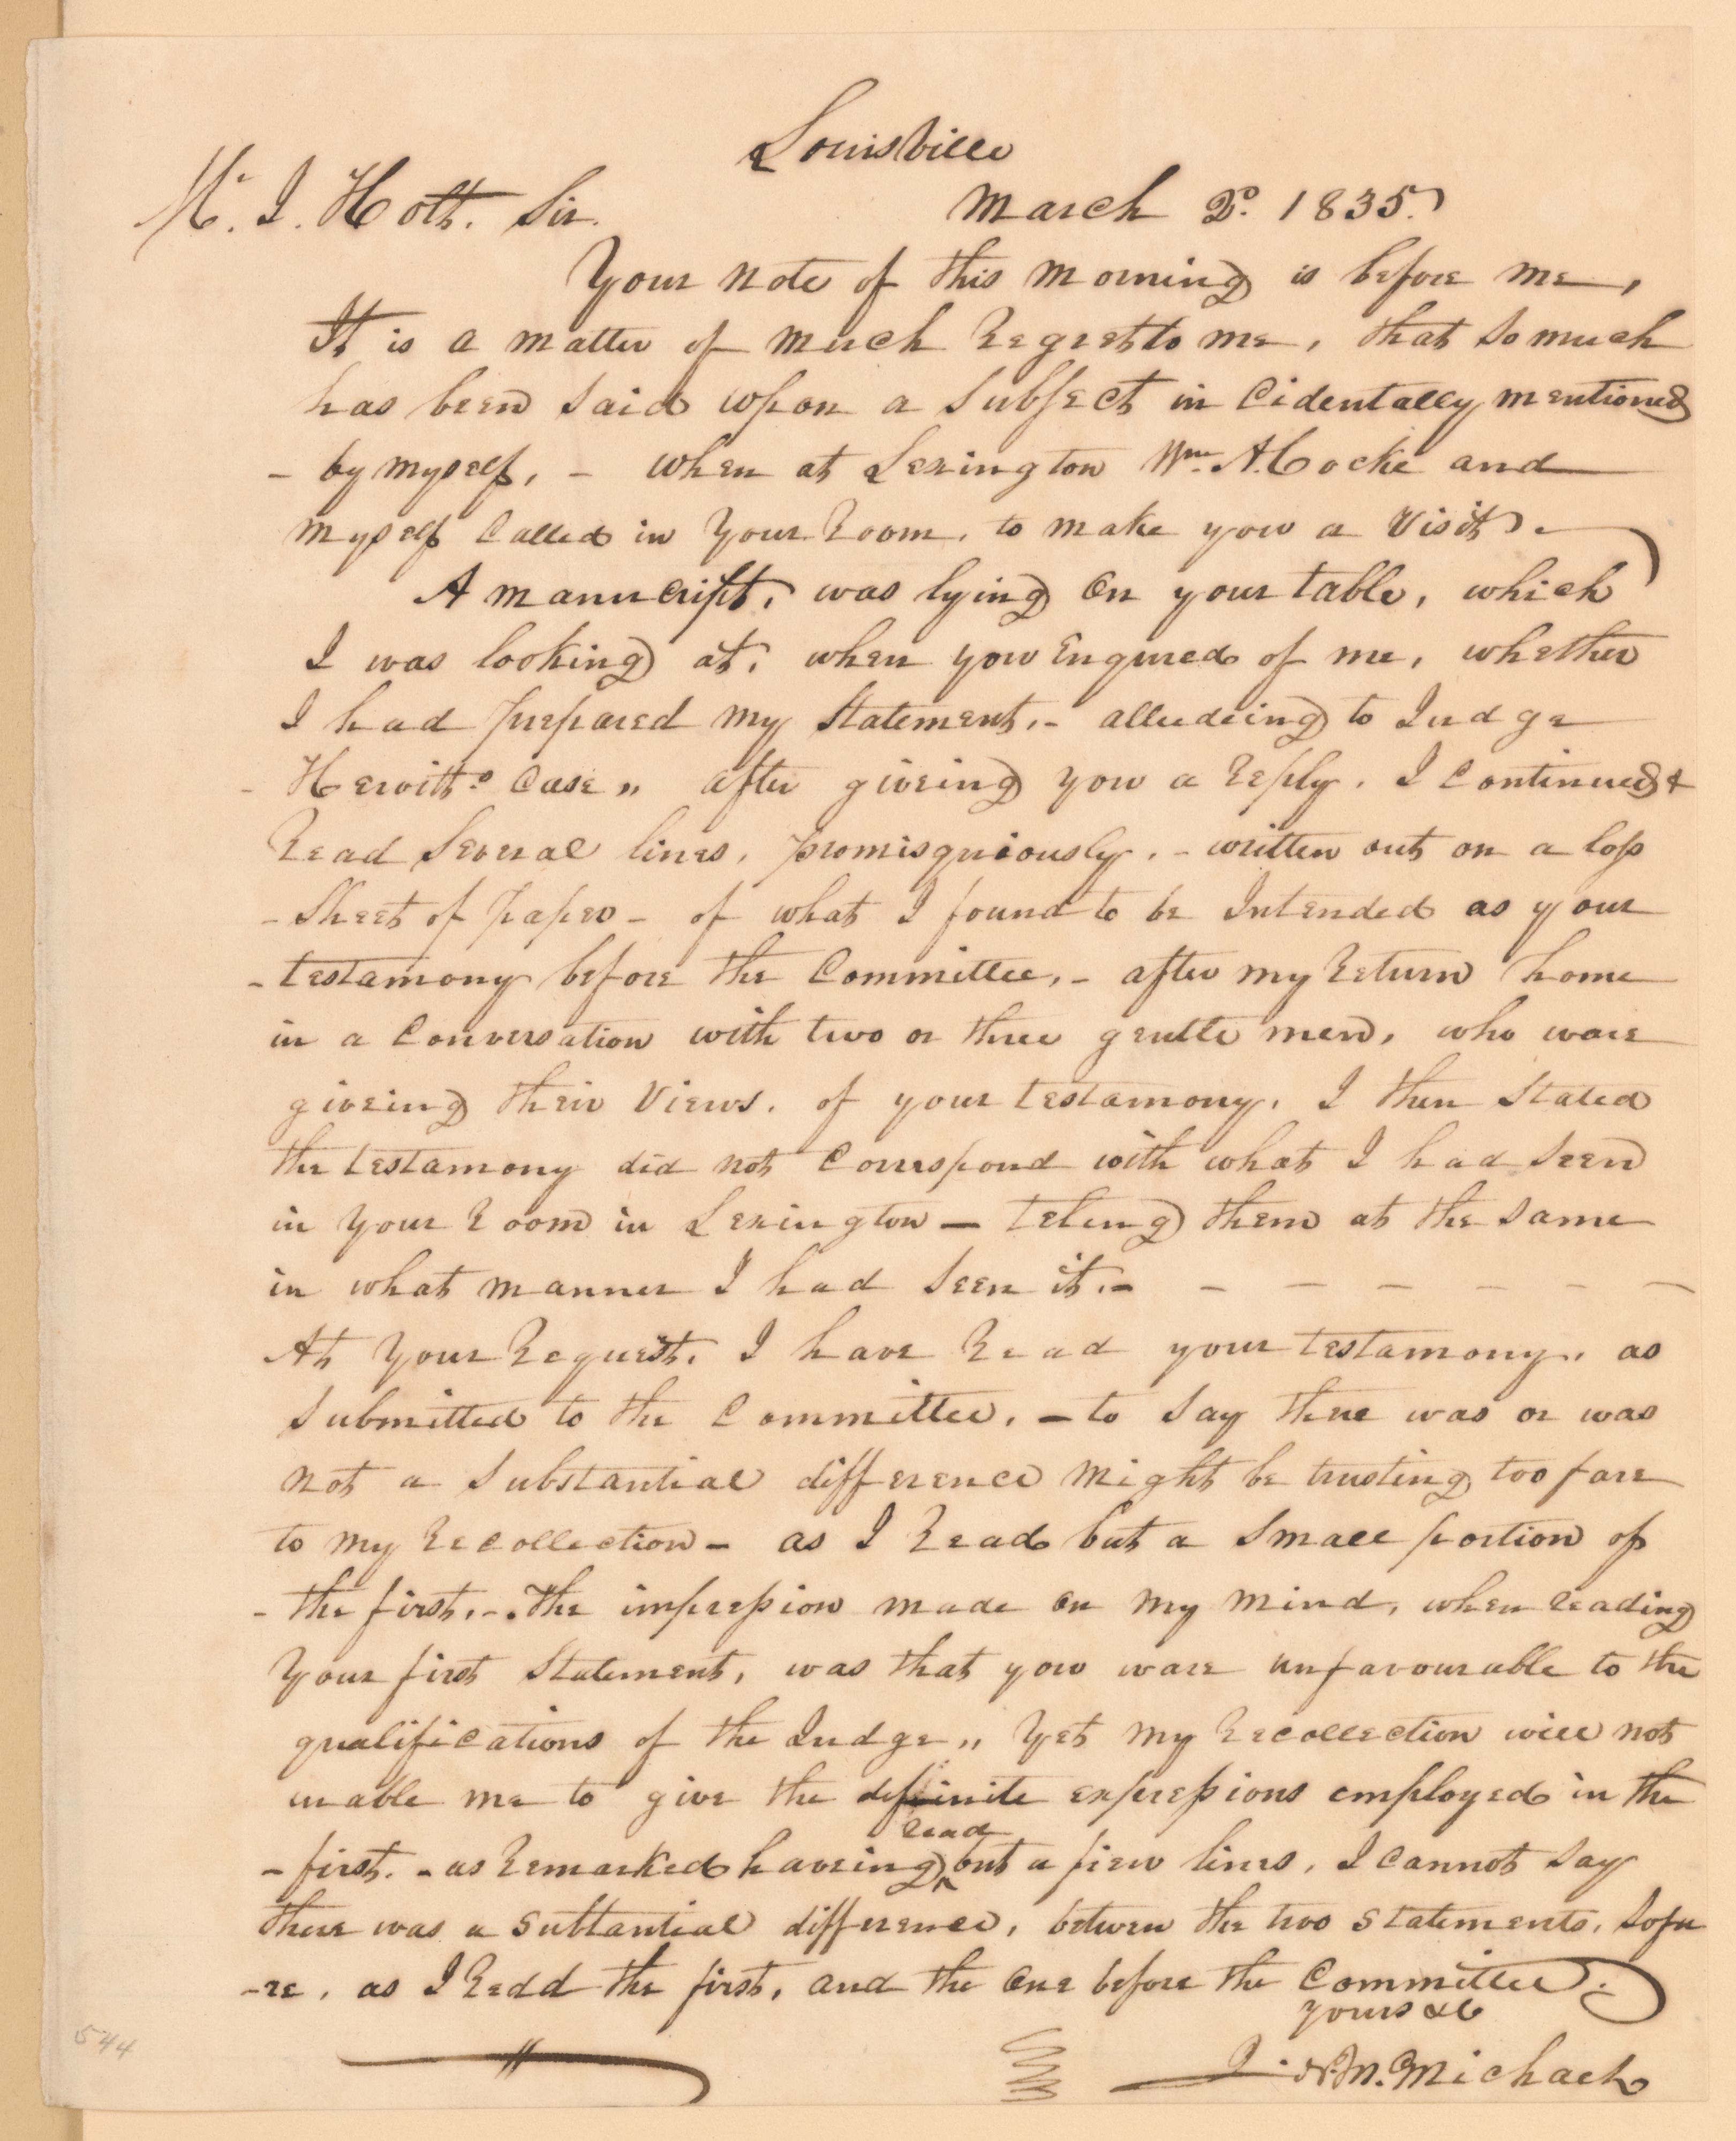 Louisville
March 2d. 1835.
Mr. J. Holt. Sir.
Your note of this morning is before me,
It is a matter of much Regret to me, that so much
has been said upon a subject in Cidentally mentioned
- by myself, - when at Lexington Wm. A. Cocke and
myself Called in Your Room, to make you a Visit.
A manuscript, was lying on your table, which
I was looking at, when you Enquired of me, whether
I had prepared my Statement, - alludeing to Judge
- Hewitts. Case " after giveing you a Reply. I Continued &
Read Several lines, promisquiously, - written out on a loss
- Sheet of paper - of what I found to be Intended as your
- testamony before the Committee, - after my Return home
in a Conversation with two or three gentle men, who ware
giveing their Views. of your testamony, I then Stated
the testamony did not Correspond with what I had Seen
in Your Room in Lexington - teling them at the same
in what manner I had Seen it. - - - - - - -
At Your Request, I have Read your testamony, as
Submitted to the Committee, - to say there was or was
not a Substantial difference might be trusting too fare
to my Recollection - as I Read but a Small portion of
- the first, - The impression made on my mind, when Reading
Your first Statement, was that you ware unfavourable to the
qualifications of the Judge " Yet my Recollection will not
unable me to give the definite expressions employed in the
read
- first. - as Remarked haveing but a fiew lines, I Cannot Say
there was a subtantial difference, between the two statements, Sofa
-re, as I Redd the first, and the One before the Committee.
Yours &C
J. McMichael
544